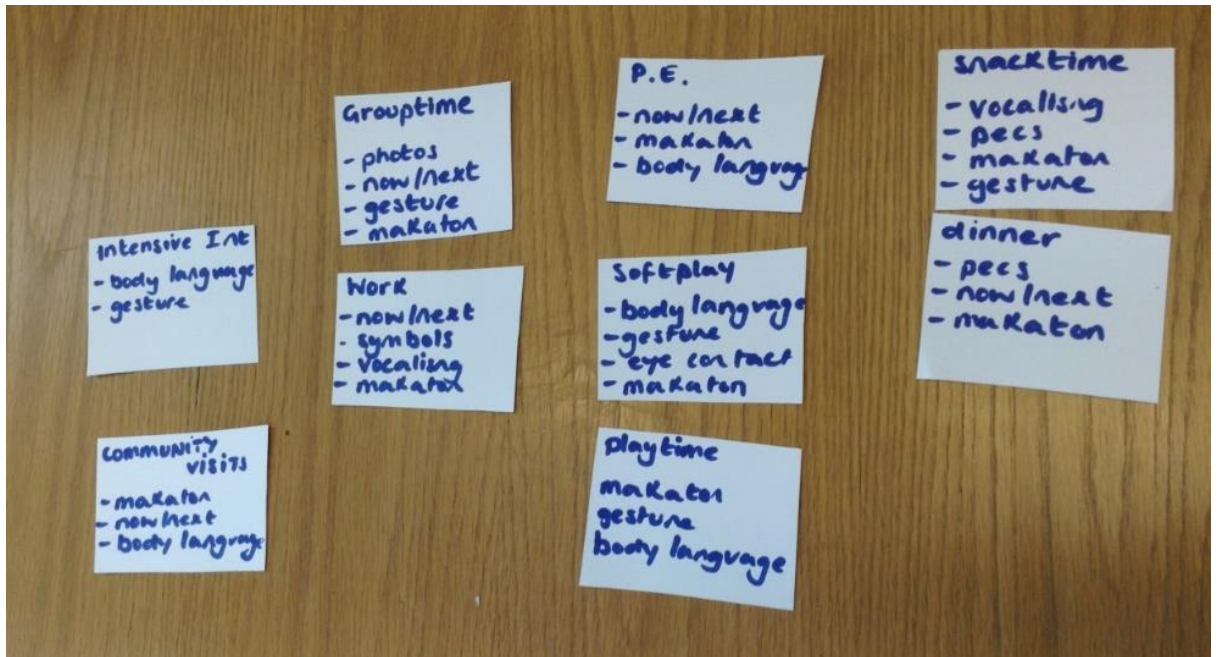 Intensive Int
- body language
- gesture
Community
visits
- makaton
- now/next
- body language
Grouptime
- photos
- now/next
- gesture
- makaton
Work
- now/next
- symbols
- vocalisng
- makaton
P.E.
- now/next
- makaton
- body language
Softplay
- body language
- gesture
- eye contact
- makaton
Playtime
makaton
gesture
body language
Snacktime
- vocalising
- pecs
- makaton
- gesture
dinner
- pecs
- now/next
- makaton